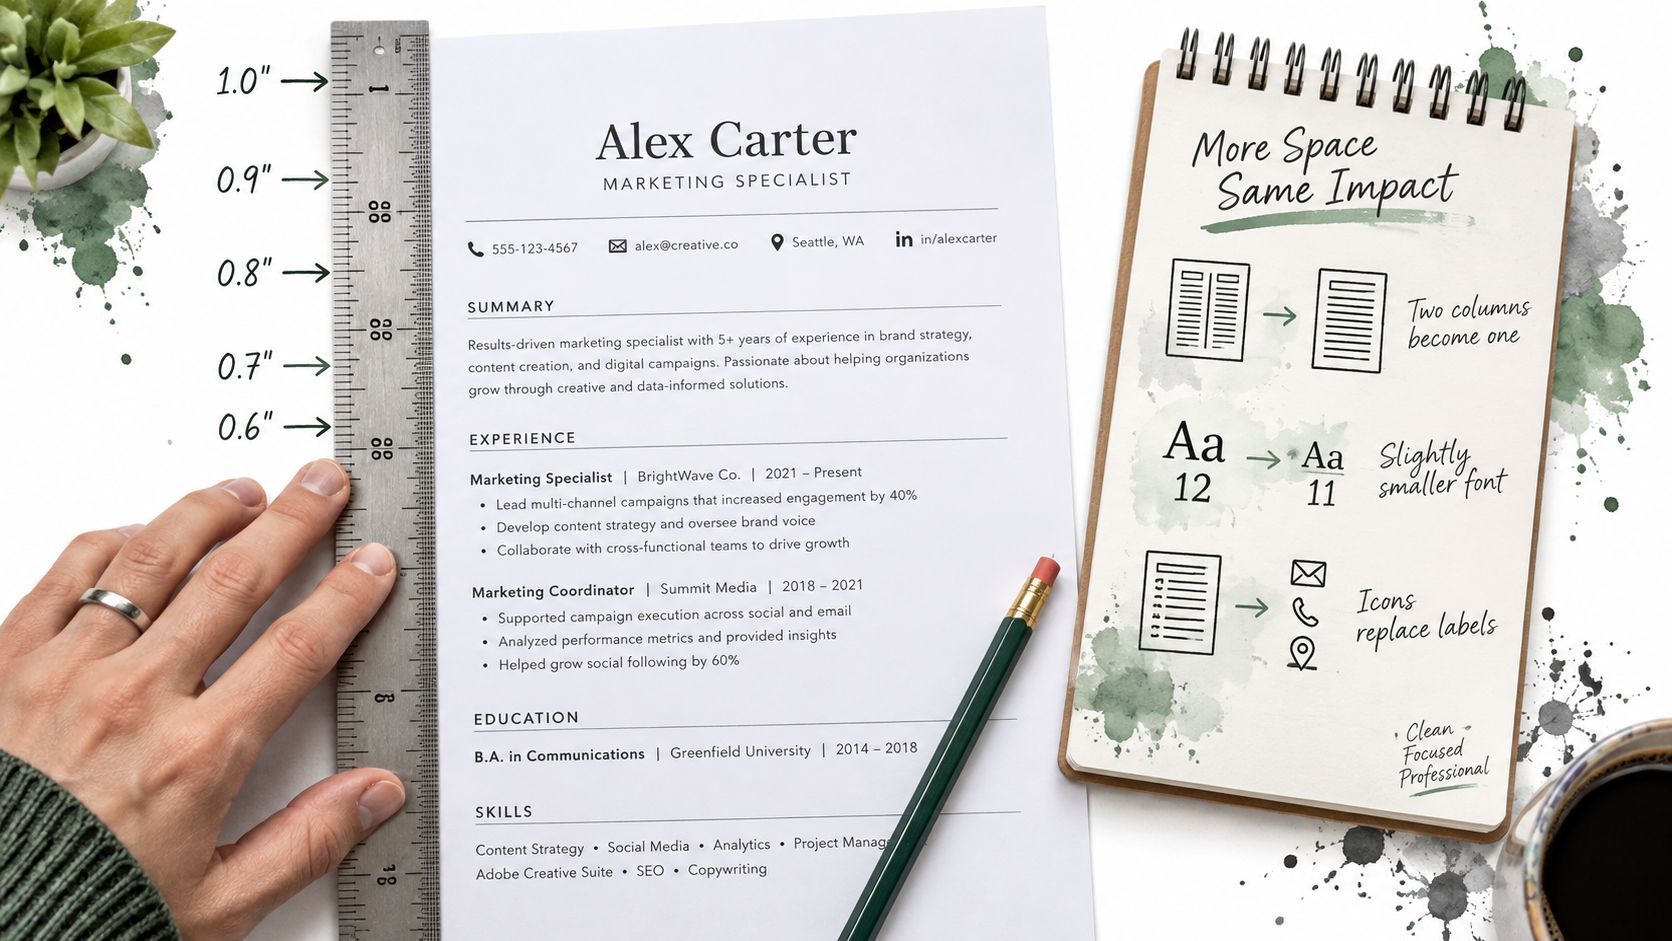 1.0"
0.9"
0.8"
0.7"
0.6"
1
8
10
Alex Carter
MARKETING SPECIALIST
555-123-4567
alex@creative.co
Seattle, WA
in in/alexcarter
SUMMARY
Results-driven marketing specialist with 5+ years of experience in brand strategy,
content creation, and digital campaigns. Passionate about helping organizations
grow through creative and data-informed solutions.
EXPERIENCE
Marketing Specialist | BrightWave Co. | 2021 – Present
• Lead multi-channel campaigns that increased engagement by 40%
• Develop content strategy and oversee brand voice
• Collaborate with cross-functional teams to drive growth
Marketing Coordinator | Summit Media | 2018 – 2021
• Supported campaign execution across social and email
• Analyzed performance metrics and provided insights
• Helped grow social following by 60%
EDUCATION
B.A. in Communications | Greenfield University | 2014 – 2018
SKILLS
Content Strategy • Social Media • Analytics • Project Manag
Adobe Creative Suite • SEO • Copywriting
More Space
Same Impact
Two columns
become one
Aa
12
Aa
11
Slightly
smaller font
Icons
replace labels
Clean
Focused
Professional